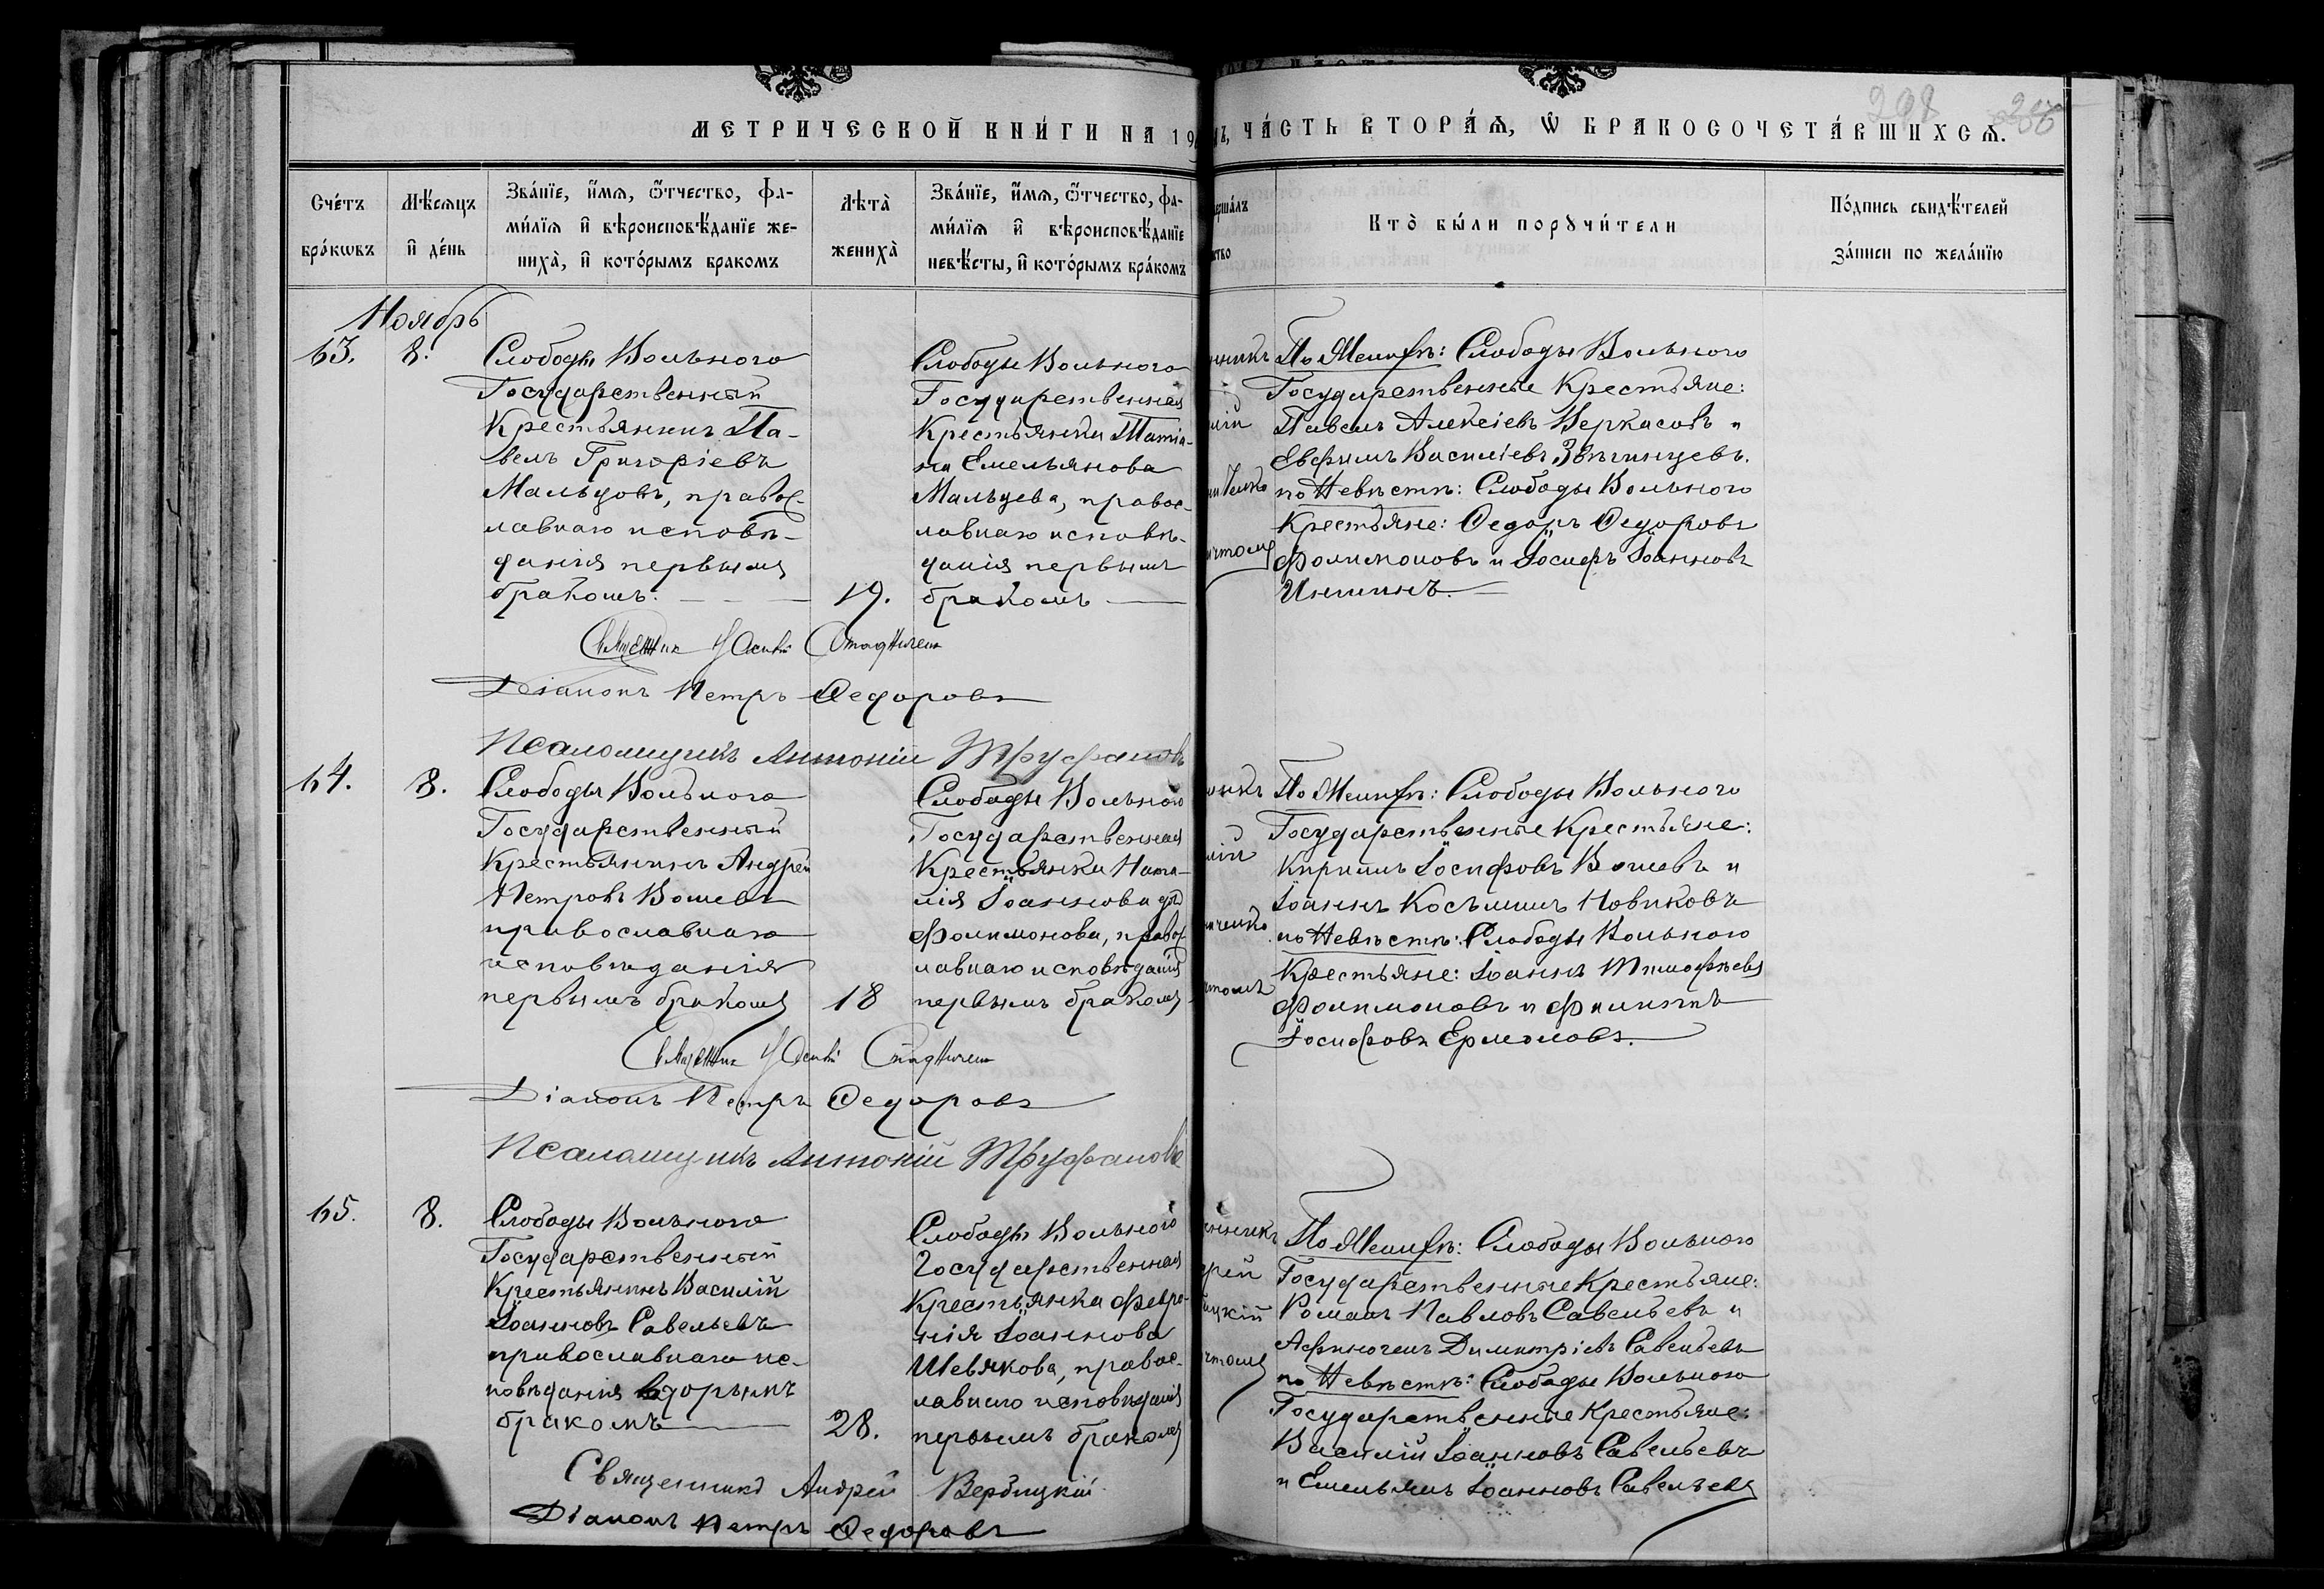 МЕТРИЧЕСКОЙ КНИ́ГИ НА 19
ЧА́СТЬ ВТОРА́Ѧ, Ѡ҆ БРАКОСОЧЕТА́ВШИХСѦ.
208
Сче́тъ бра́кѡвъ
Мѣ́сѧцъ и҆ де́нь
Зва́нїе, и҆́мѧ, ѻ҆́тчество, фа-
ми́лїѧ и҆ вѣроисповѣ́данїе же-
ниха̀, и҆ кото́рымъ бракомъ
Лѣта̀ жениха̀
Зва́нїе, и҆́мѧ, ѻ҆́тчество, фа-
ми́лїѧ и҆ вѣроисповѣ́данїе
невѣ́сты, и҆ кото́рымъ бра́комъ
Кто̀ бы́ли порꙋчи́тели
По́дпись свидѣ́телей
за́писи по жела́нїю
Ноябрь
63.
8.
Слободы Вольнаго
Государственный
Крестьянинъ Па-
велъ Григоріевъ
Мальцовъ, правос-
лавнаго исповѣ-
данія первымъ
бракомъ.
19.
Слободы Вольнаго
Государственная
Крестьянка Татіа-
на Емельянова
Мальцева, правос-
лавнаго исповѣ-
данія первымъ
бракомъ
По Женихѣ: Слободы Вольнаго
Государственные Крестьяне:
Павелъ Алексіевъ Черкасовъ и
Евфимъ Василіевъ Звѣгинцевъ.
по Невѣстѣ: Слободы Вольнаго
Крестьяне: Ѳедоръ Ѳедоровъ
Филимоновъ и Іосифъ Іоанновъ
Священник
Діаконъ Петръ Ѳедоровъ
Псаломщикъ Антоній Труфановъ
64.
8.
Слободы Вольнаго
Государственный
Крестьянинъ Андрей
Петровъ
православнаго
исповѣданія
первымъ бракомъ
18
Слободы Вольнаго
Государственная
Крестьянка Ната-
лія Іоаннова
Филимонова, правос-
лавнаго исповѣданія
первымъ бракомъ
По Женихѣ: Слободы Вольнаго
Государственные Крестьяне:
Кириллъ Іосифовъ и
Іоаннъ Косьминъ Новиковъ
по Невѣстѣ: Слободы Вольнаго
Крестьяне: Іоаннъ Тимофѣевъ
Филимоновъ и Филиппъ
Іосифовъ Ермоловъ.
Священник
Діаконъ Петръ Ѳедоровъ
Псаломщикъ Антоній Труфановъ
65.
8.
Слободы Вольнаго
Государственный
Крестьянинъ Василій
Іоанновъ Савельевъ
православнаго ис-
повѣданія вторымъ
бракомъ
28.
Слободы Вольнаго
Государственная
Крестьянка Февро-
нія Іоаннова
Шевякова, правос-
лавнаго исповѣданія
первымъ бракомъ
По Женихѣ: Слободы Вольнаго
Государственные Крестьяне:
Романъ Павловъ Савельевъ и
Димитріевъ Савельевъ
по Невѣстѣ: Слободы Вольнаго
Государственные Крестьяне:
Василій Іоанновъ Савельевъ
и Емельянъ Іоанновъ Савельевъ
Священникъ Андрей Вербицкій
Діаконъ Петръ Ѳедоровъ